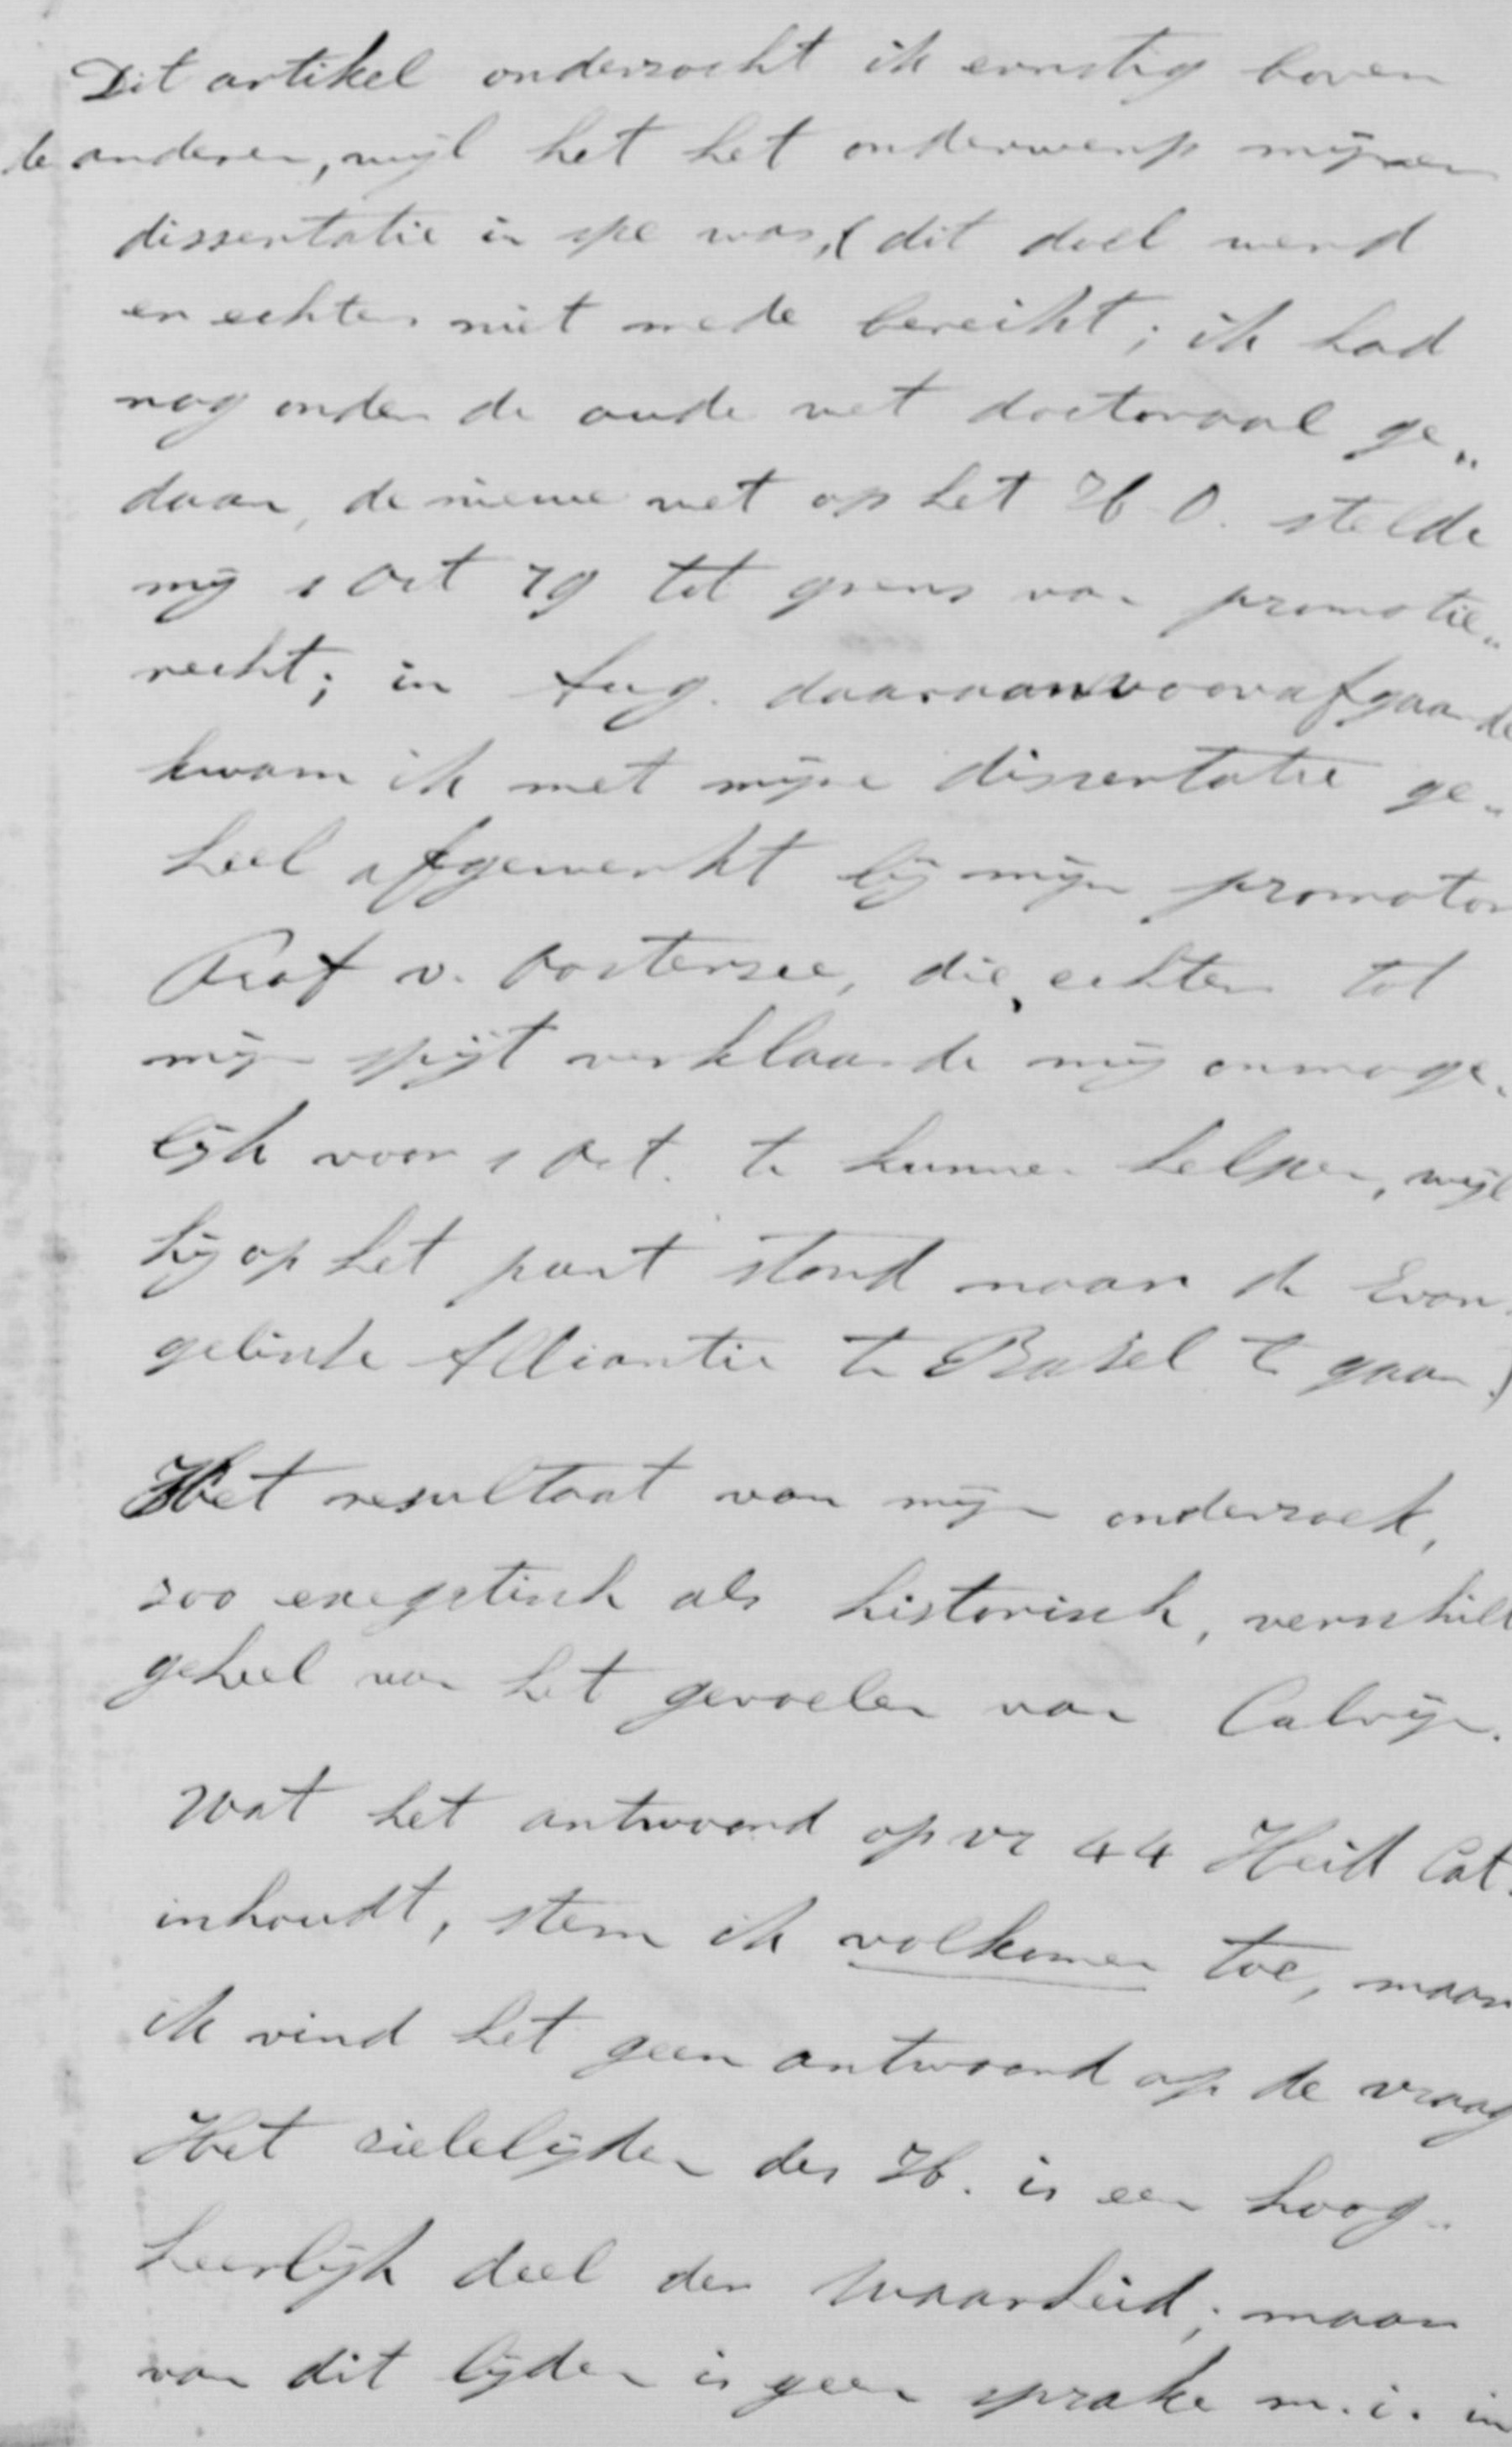 Dit artikel onderzocht ik ernstig boven
de anderen, wijl het het onderwerp mijner
dissertatie in spe was, (dit doel werd
er echter niet mede bereikt; ik had
nog onder de oude wet doctoraal ge„
daan, de nieuwe wet op het H. O. stelde
mij 1 Oct 79 tot grens van promotie„
recht; in Aug. daaraanvoorafgaande
kwam ik met mijne dissertatie ge„
heel afgewerkt bij mijn promotor
Prof v. Oosterzee, die, echter tot
mijn spijt verklaarde mij onmoge„
lijk voor 1 Oct. te kunnen helpen, wijl
hij op het punt stond naar de Evan„
gelische Alliantie te Basel te gaan.)
Het resultaat van mijn onderzoek,
zoo exegetisch als historisch, verschilt
geheel van het gevoelen van Calvijn.
Wat het antwoord op vr 44 Heid Cat.
inhoudt, stem ik volkomen toe, maar
ik vind het geen antwoord op de vraag
Het zielelijden des H. is een hoog„
heerlijk deel der waarheid; maar
van dit lijden is geen sprake m. i. in